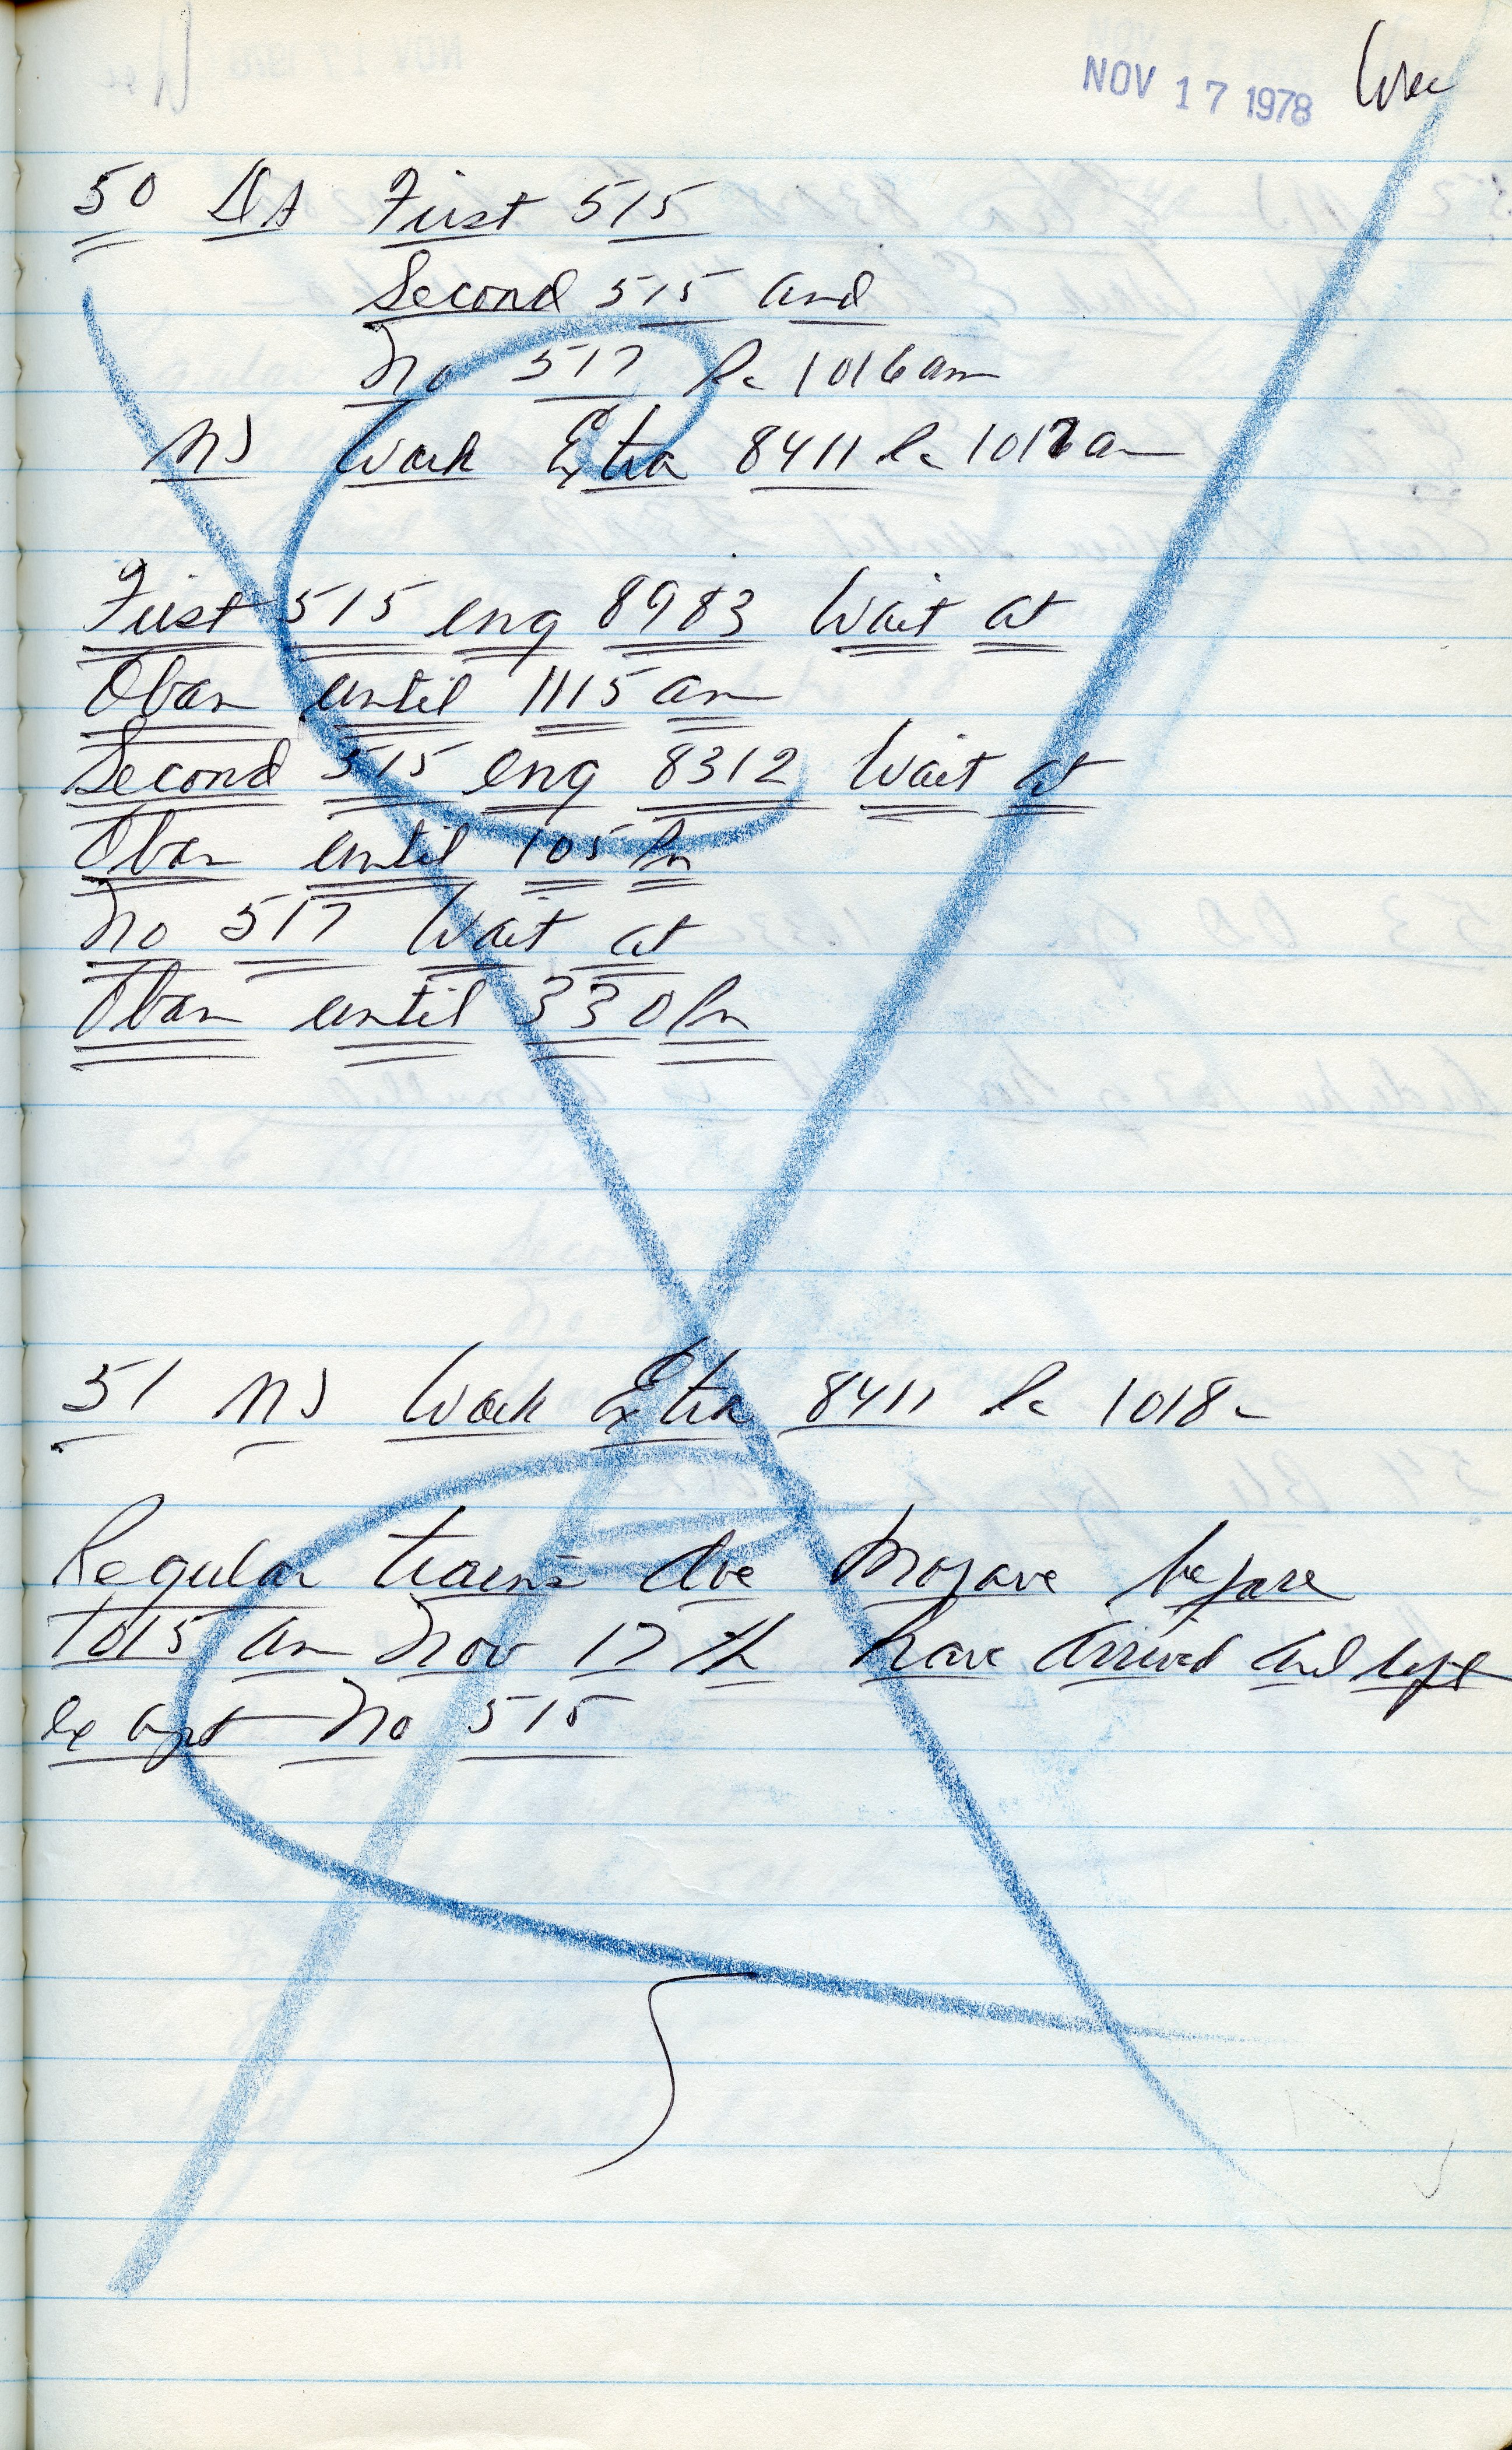 NOV 17 1978
50 DS First 515
Second 515 and
No 517 Rc 1016 am
MJ Work Extra 8411 Rc 1017 am
First 515 eng 8983 Wait at
Oban until 1115 am
Second 515 eng 8312 Wait at
Oban until 105 Pm
No 517 Wait at
Oban until 330 Pm
51 MJ Work Extra 8411 Rc 1018
Regular trains due Mojave before
1015 am Nov 17 th have arrived and left
except No 515